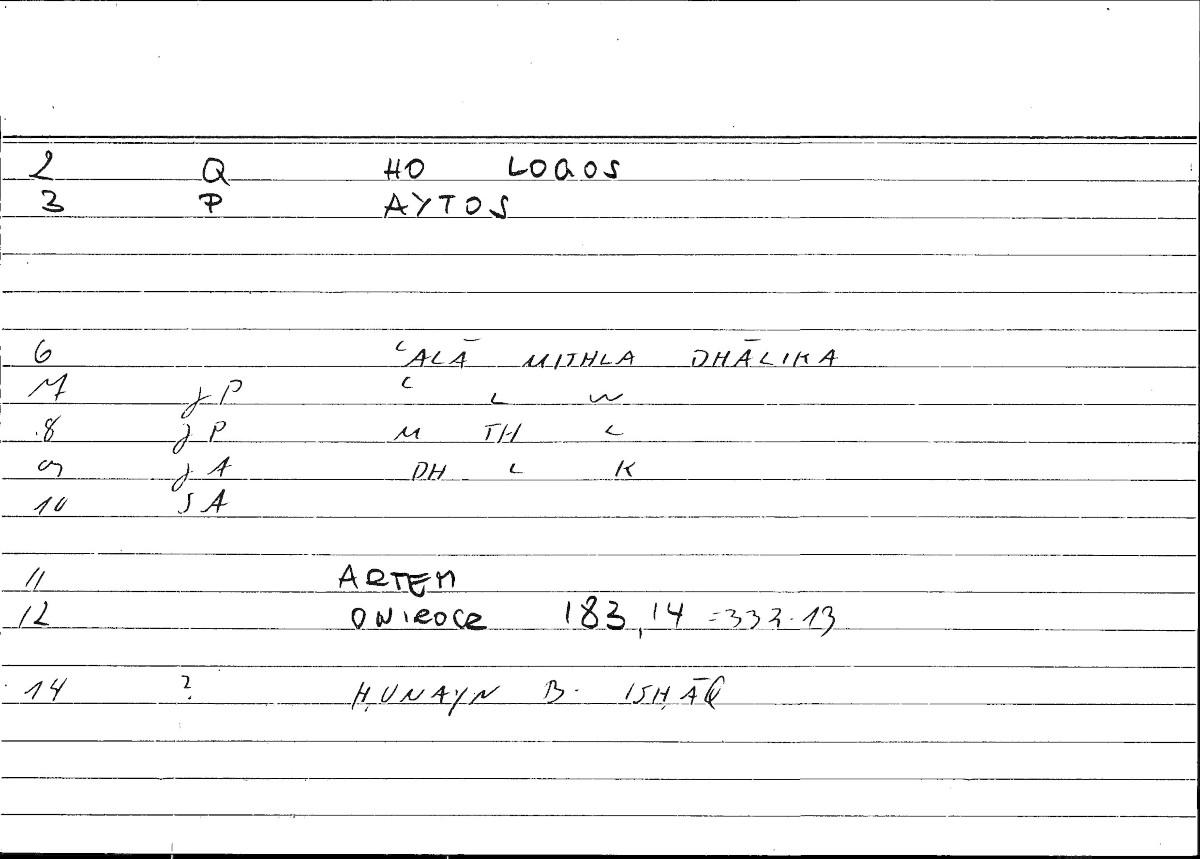 2 Q HO LOGOS
3 P AYTOS
6 ʿALĀ MITHLA DHĀLIKA
7 J P ʿ L W
8 J P M TH L
9 J A DH L K
10 S A
11 ARTEM
12 ONIROCR 183,14 = 332.13
14 ? ḤUNAYN B. ISḤĀQ